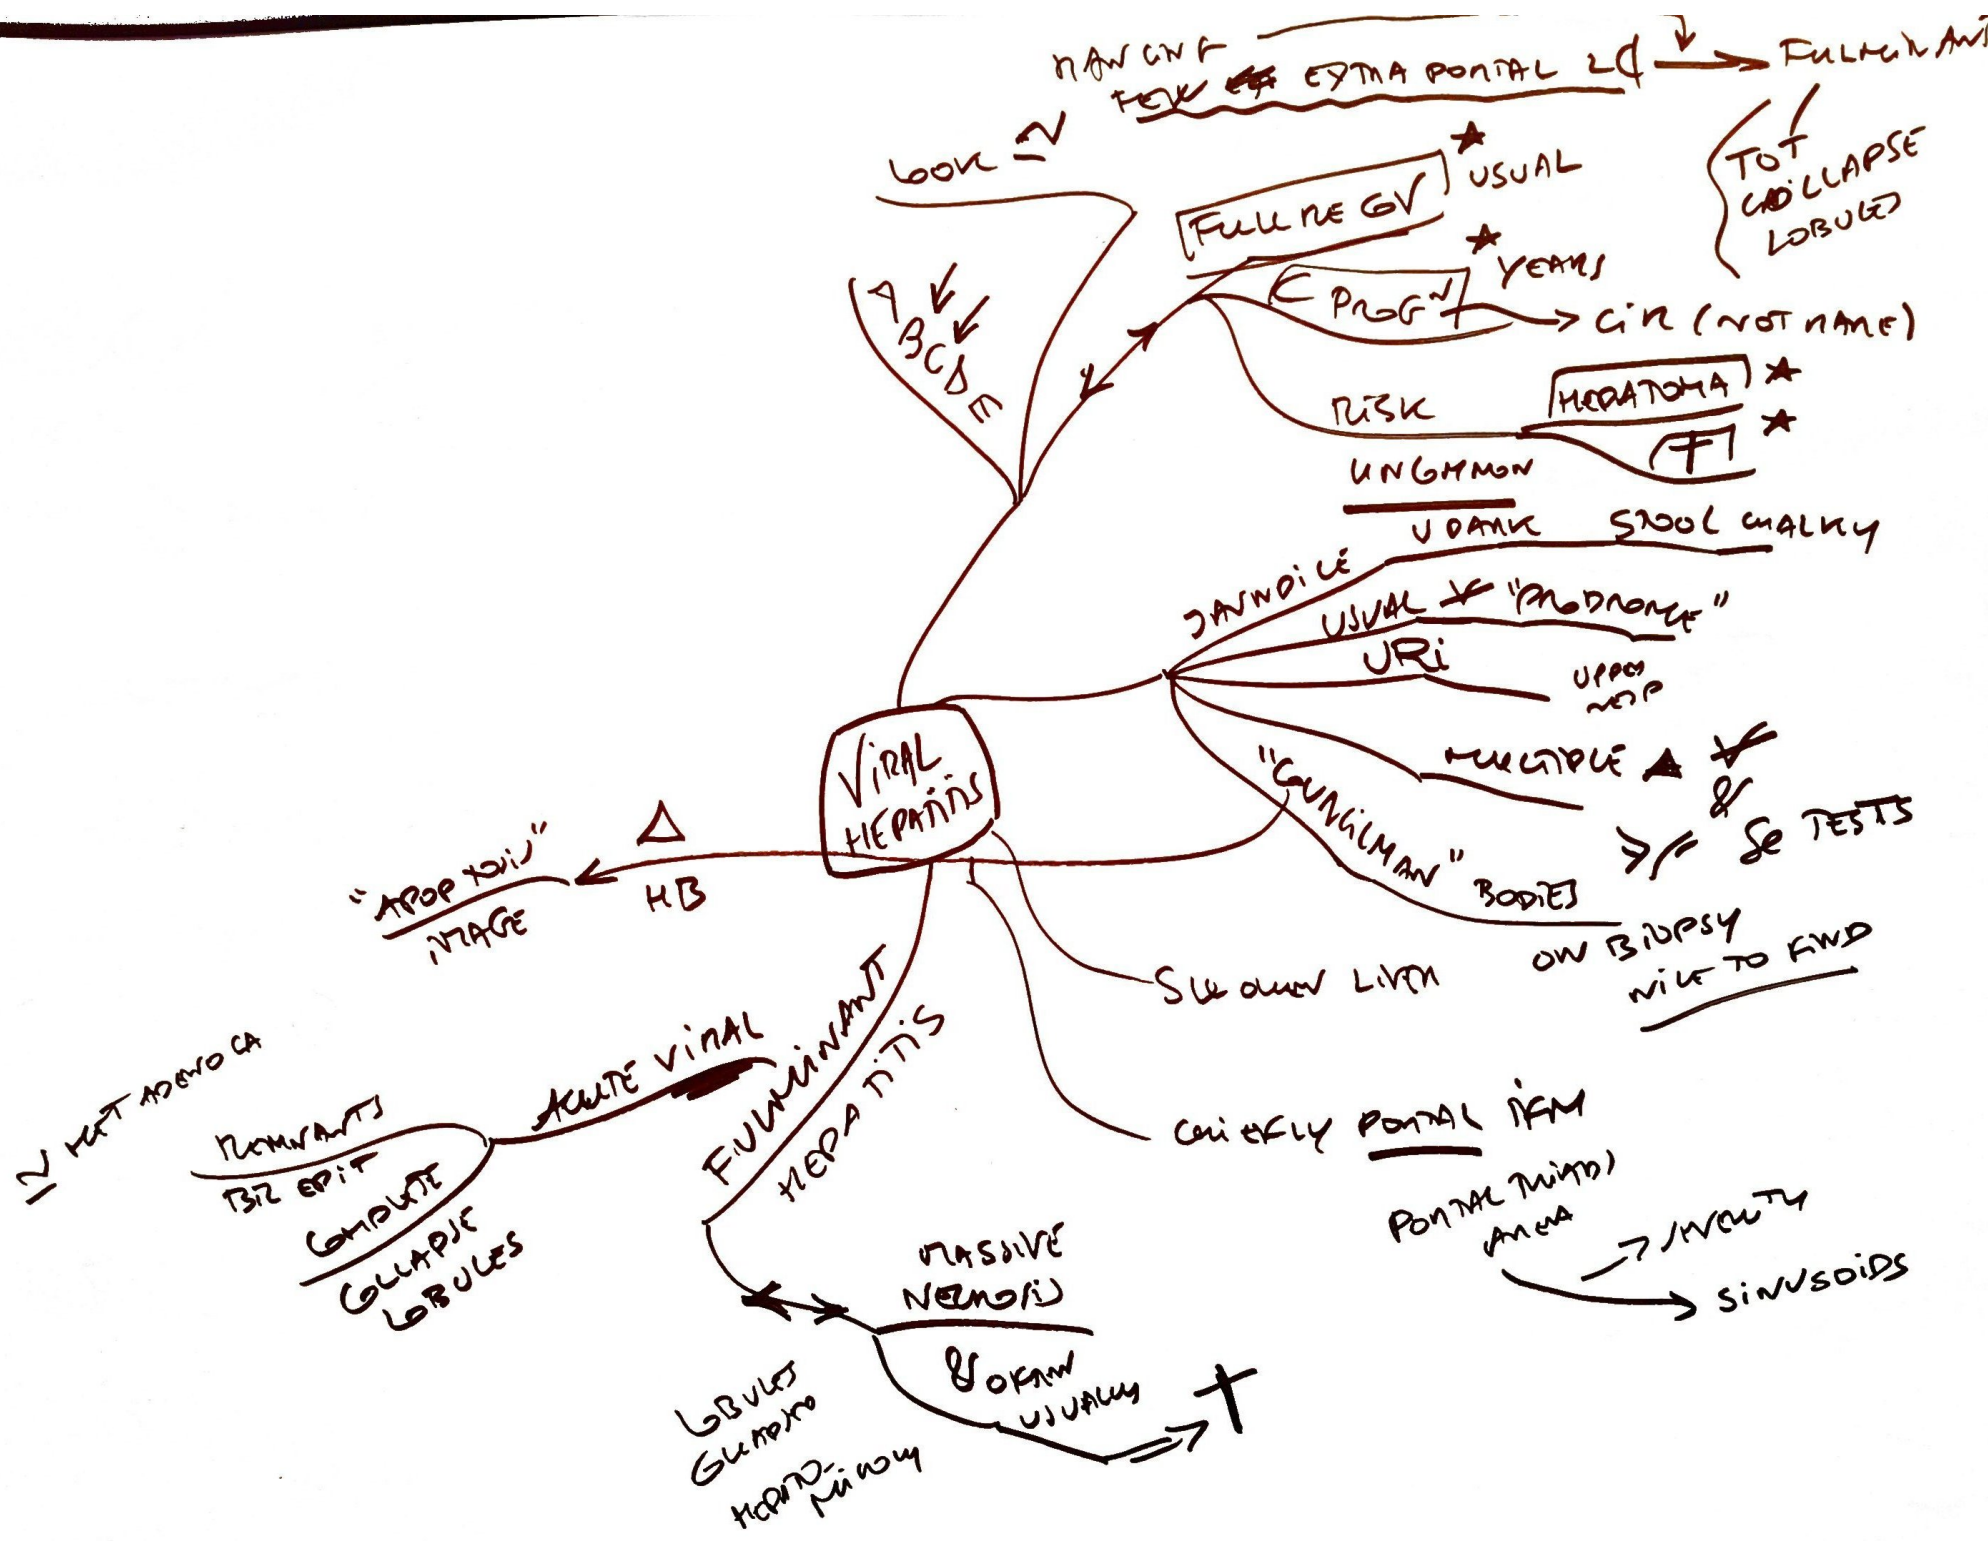 EXTRA PORTAL
FULMINANT
LOOK
TOT
COLLAPSE
LOBULES
FULL RECOV
USUAL
C PROGN
YEARS
CIR (NOT RARE)
A
B
C
D
E
RISK
HEPATOMA
UNCOMMON
JAUNDICE
U DARK
STOOL CHALKY
USUAL
"PRODROME"
URI
UPPER
RESP
MULTIPLE
&
SE TESTS
"COUNCILMAN"
BODIES
ON BIOPSY
NICE TO FIND
VIRAL
HEPATITIS
"APOPTOSIS"
IMAGE
HB
SWOLLEN LIVER
CHIEFLY PORTAL IFM
PORTAL TRIADS
AREA
SINUSOIDS
FULMINANT
HEPATITIS
ACUTE VIRAL
MET ADENO CA
REMNANTS
BIL EPIT
COMPLETE
COLLAPSE
LOBULES
MASSIVE
NECROSIS
&
USUALLY
LOBULES
HEPATO-